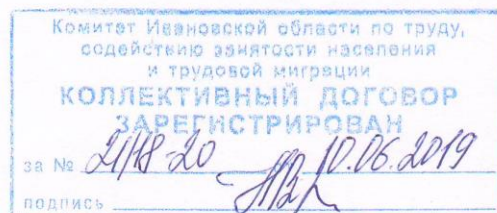 Комитет Ивановской области по труду,
содействию занятости населения
и трудовой миграции
КОЛЛЕКТИВНЫЙ ДОГОВОР
ЗАРЕГИСТРИРОВАН
за № 21/18-20 10.06.2019
подпись